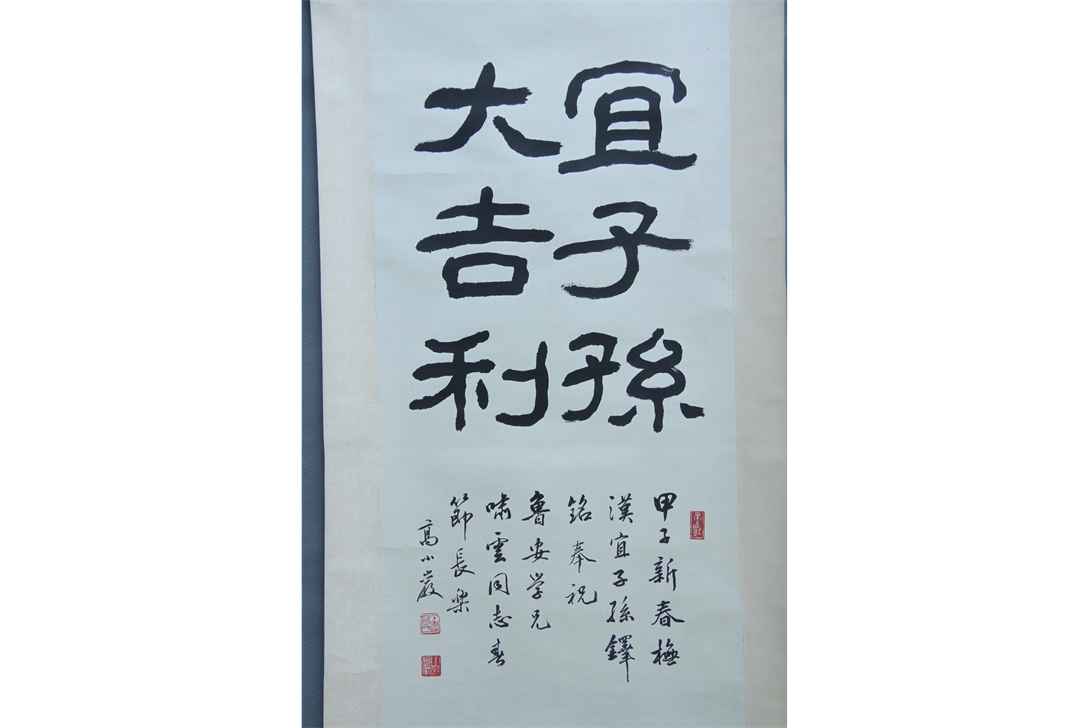 宜子孫
大吉利
甲子新春橅
漢宜子孫鐸
銘奉祝
魯安学兄
嘯雲同志春
節長樂
高小巖